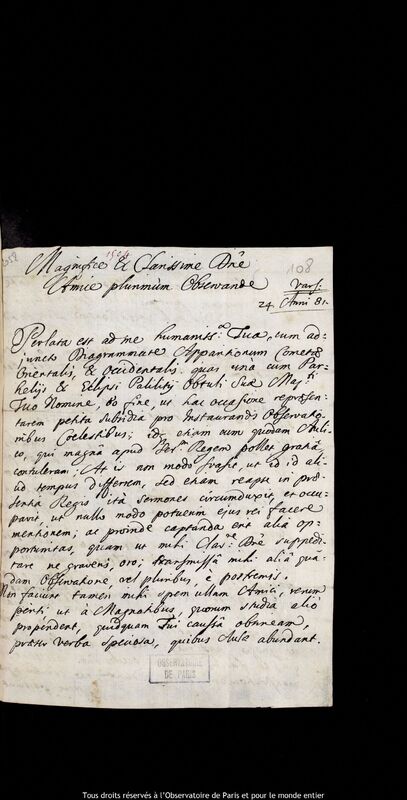 108
Magnifice & Clarissime Dñe
Amice plurimùm Observande
Vars:
24. Anni 81.
Perlata est ad me humaniss: Tua, cum ad-
iuncto Diagrammate Apparitionum Cometæ
Orientalis, & Occidentalis: quas unà cum Par-
helijs & Eclypsi Palilitij obtuli Suæ Maj:ti
Tuo Nomine, eo fine, ut hac occasione repræsen-
tarem petita subsidia pro Instaurandis Observatio-
nibus Coelestibus; id etiam cum quodam Auli-
co, qui magnâ apud Ser:m Regem pollet gratiâ,
contuleram; At is non modo suasit, ut id in ali-
ud tempus differrem, sed etiam reapse in præ-
sentia Regis ità sermones circumduxit, et occu-
pavit, ut nullo modo potuerim ejus rei facere
mentionem; ac proinde captanda erit alia op-
portunitas, quam ut mihi Clar:me Dñe suppedi-
tare ne graveris, oro; transmissâ mihi aliâ quâ-
dam Observatione, vel pluribus, è postremis.
Non faciunt tamen mihi spem ullam Amici, rerum
periti ut à Magnatibus, quorum studia aliò
propendent, quidquam Tui causâ obtineam,
præter verba speciosa, quibus Aula abundant.
OBSERVATOIRE
DE PARIS
Tous droits réservés à l'Observatoire de Paris et pour le monde entier